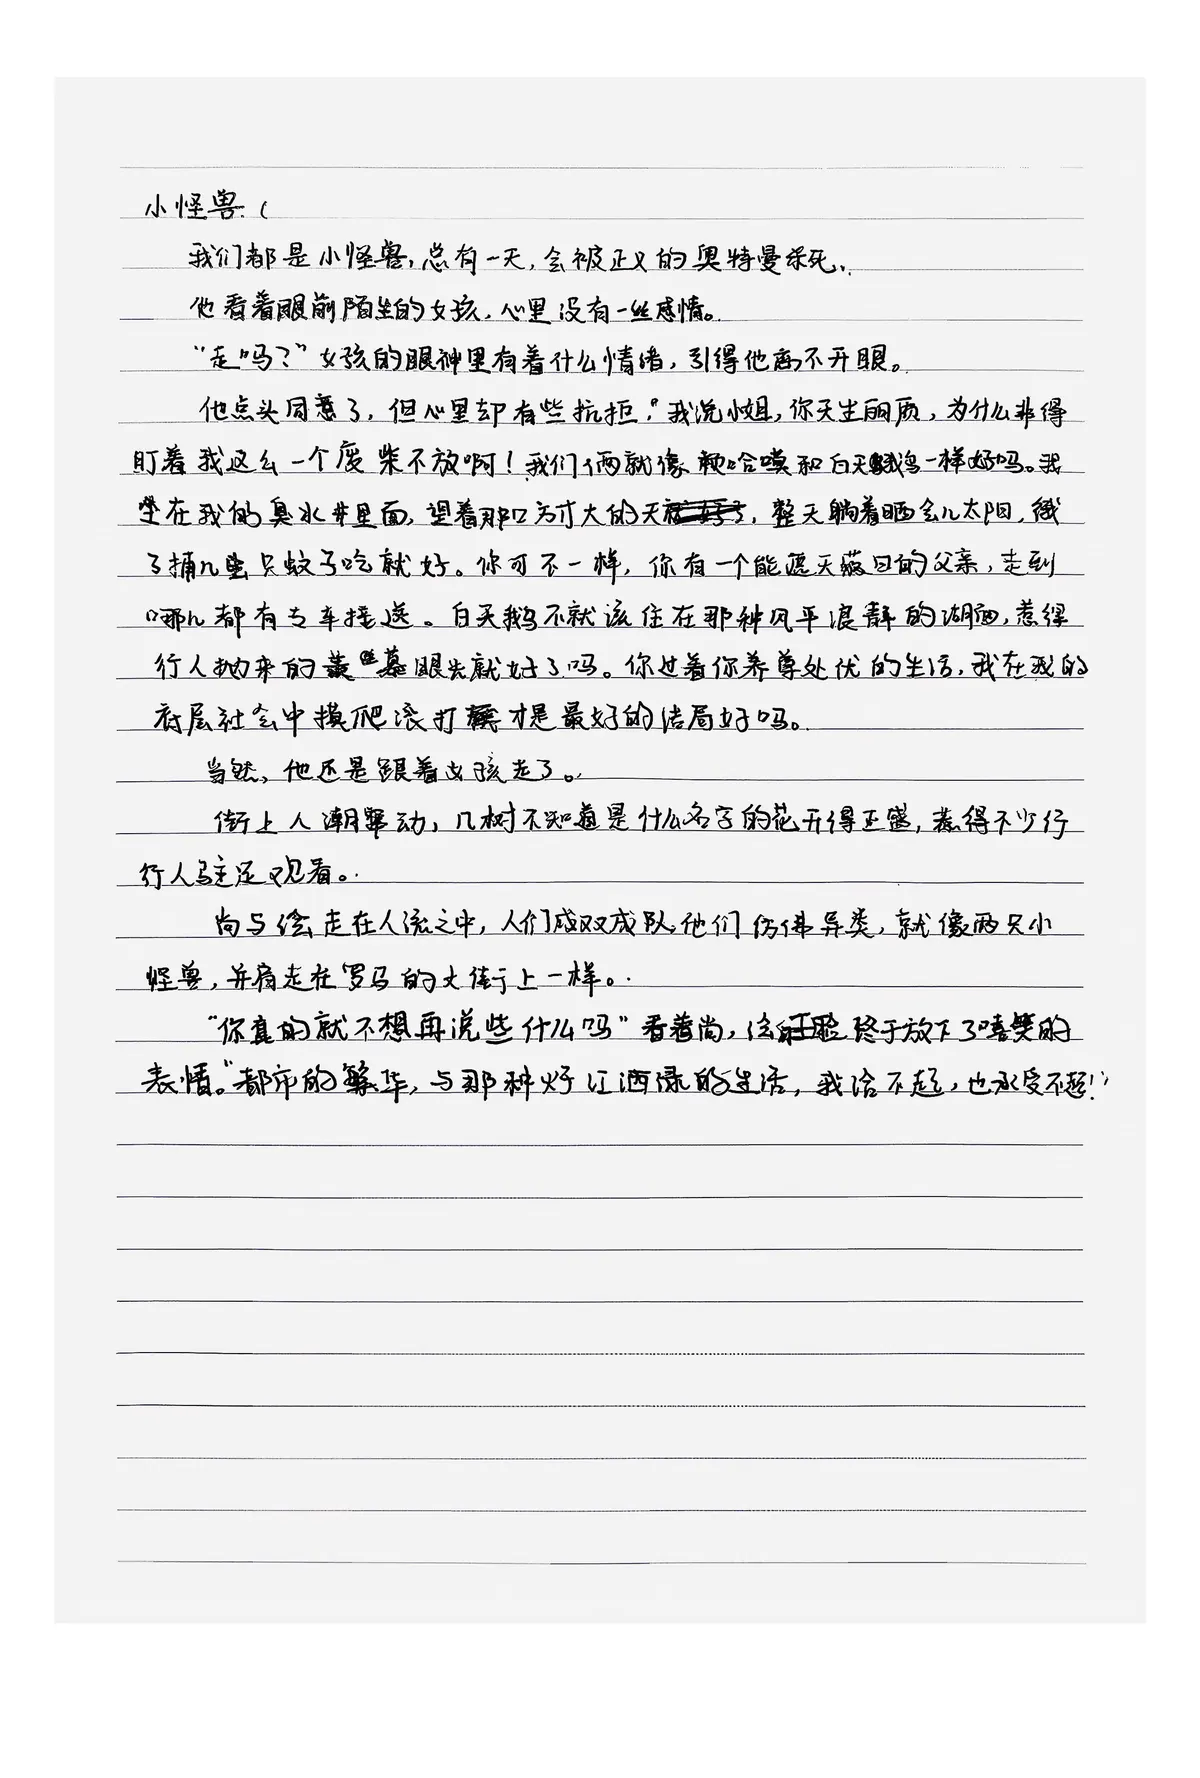 小怪兽.（
我们都是小怪兽，总有一天，会被正义的奥特曼杀死.
他看着眼前陌生的女孩，心里没有一丝感情。
“走吗？”女孩的眼神里有着什么情绪，引得他离不开眼。
他点头同意了，但心里却有些抗拒“我说小姐，你天生丽质，为什么非得
盯着我这么一个废柴不放啊！我们俩就像癞哈嫫和白天鹅一样好吗。我
坐在我的臭水井里面，望着那口方寸大的天，整天躺着晒会儿太阳，饿
了捕几只蚊子吃就好。你可不一样，你有一个能遮天蔽日的父亲，走到
哪儿都有专车接送。白天鹅不就该住在那种风平浪静的湖面，惹得
行人抛来的羡慕眼光就好了吗。你过着你养尊处优的生活，我在我的
底层社会中摸爬滚打才是最好的结局好吗。
当然，他还是跟着女孩走了。
街上人潮攒动，几树不知道是什么名字的花开得正盛，惹得不少行
行人驻足观看。
尚与绘走在人流之中，人们成双成队，他们仿佛异类，就像两只小
怪兽，并肩走在罗马的大街上一样。
“你真的就不想再说些什么吗”看着尚，绘脸终于放下了嘻笑的
表情。“都市的繁华，与那种灯红酒绿的生活，我给不起，也承受不起！”